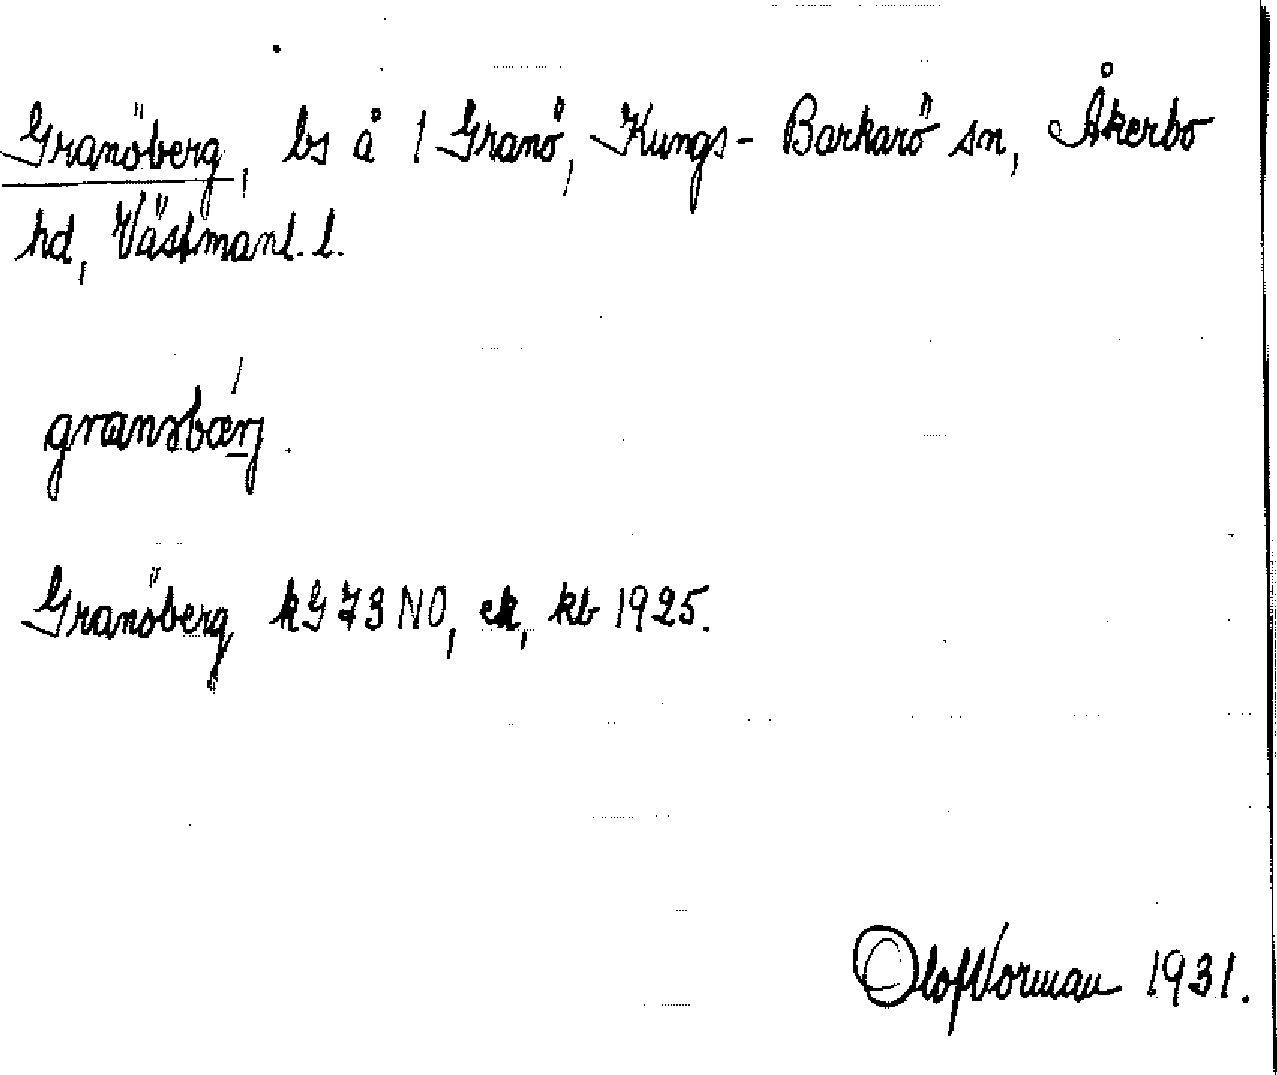 Granöberg, bs å 1 Granö, Kungs-Barkarö sn, Åkerbo
hd, Västmanl. l.
Granöberg kG 73 NO, ek, kb 1925.
Olof Norman 1931.